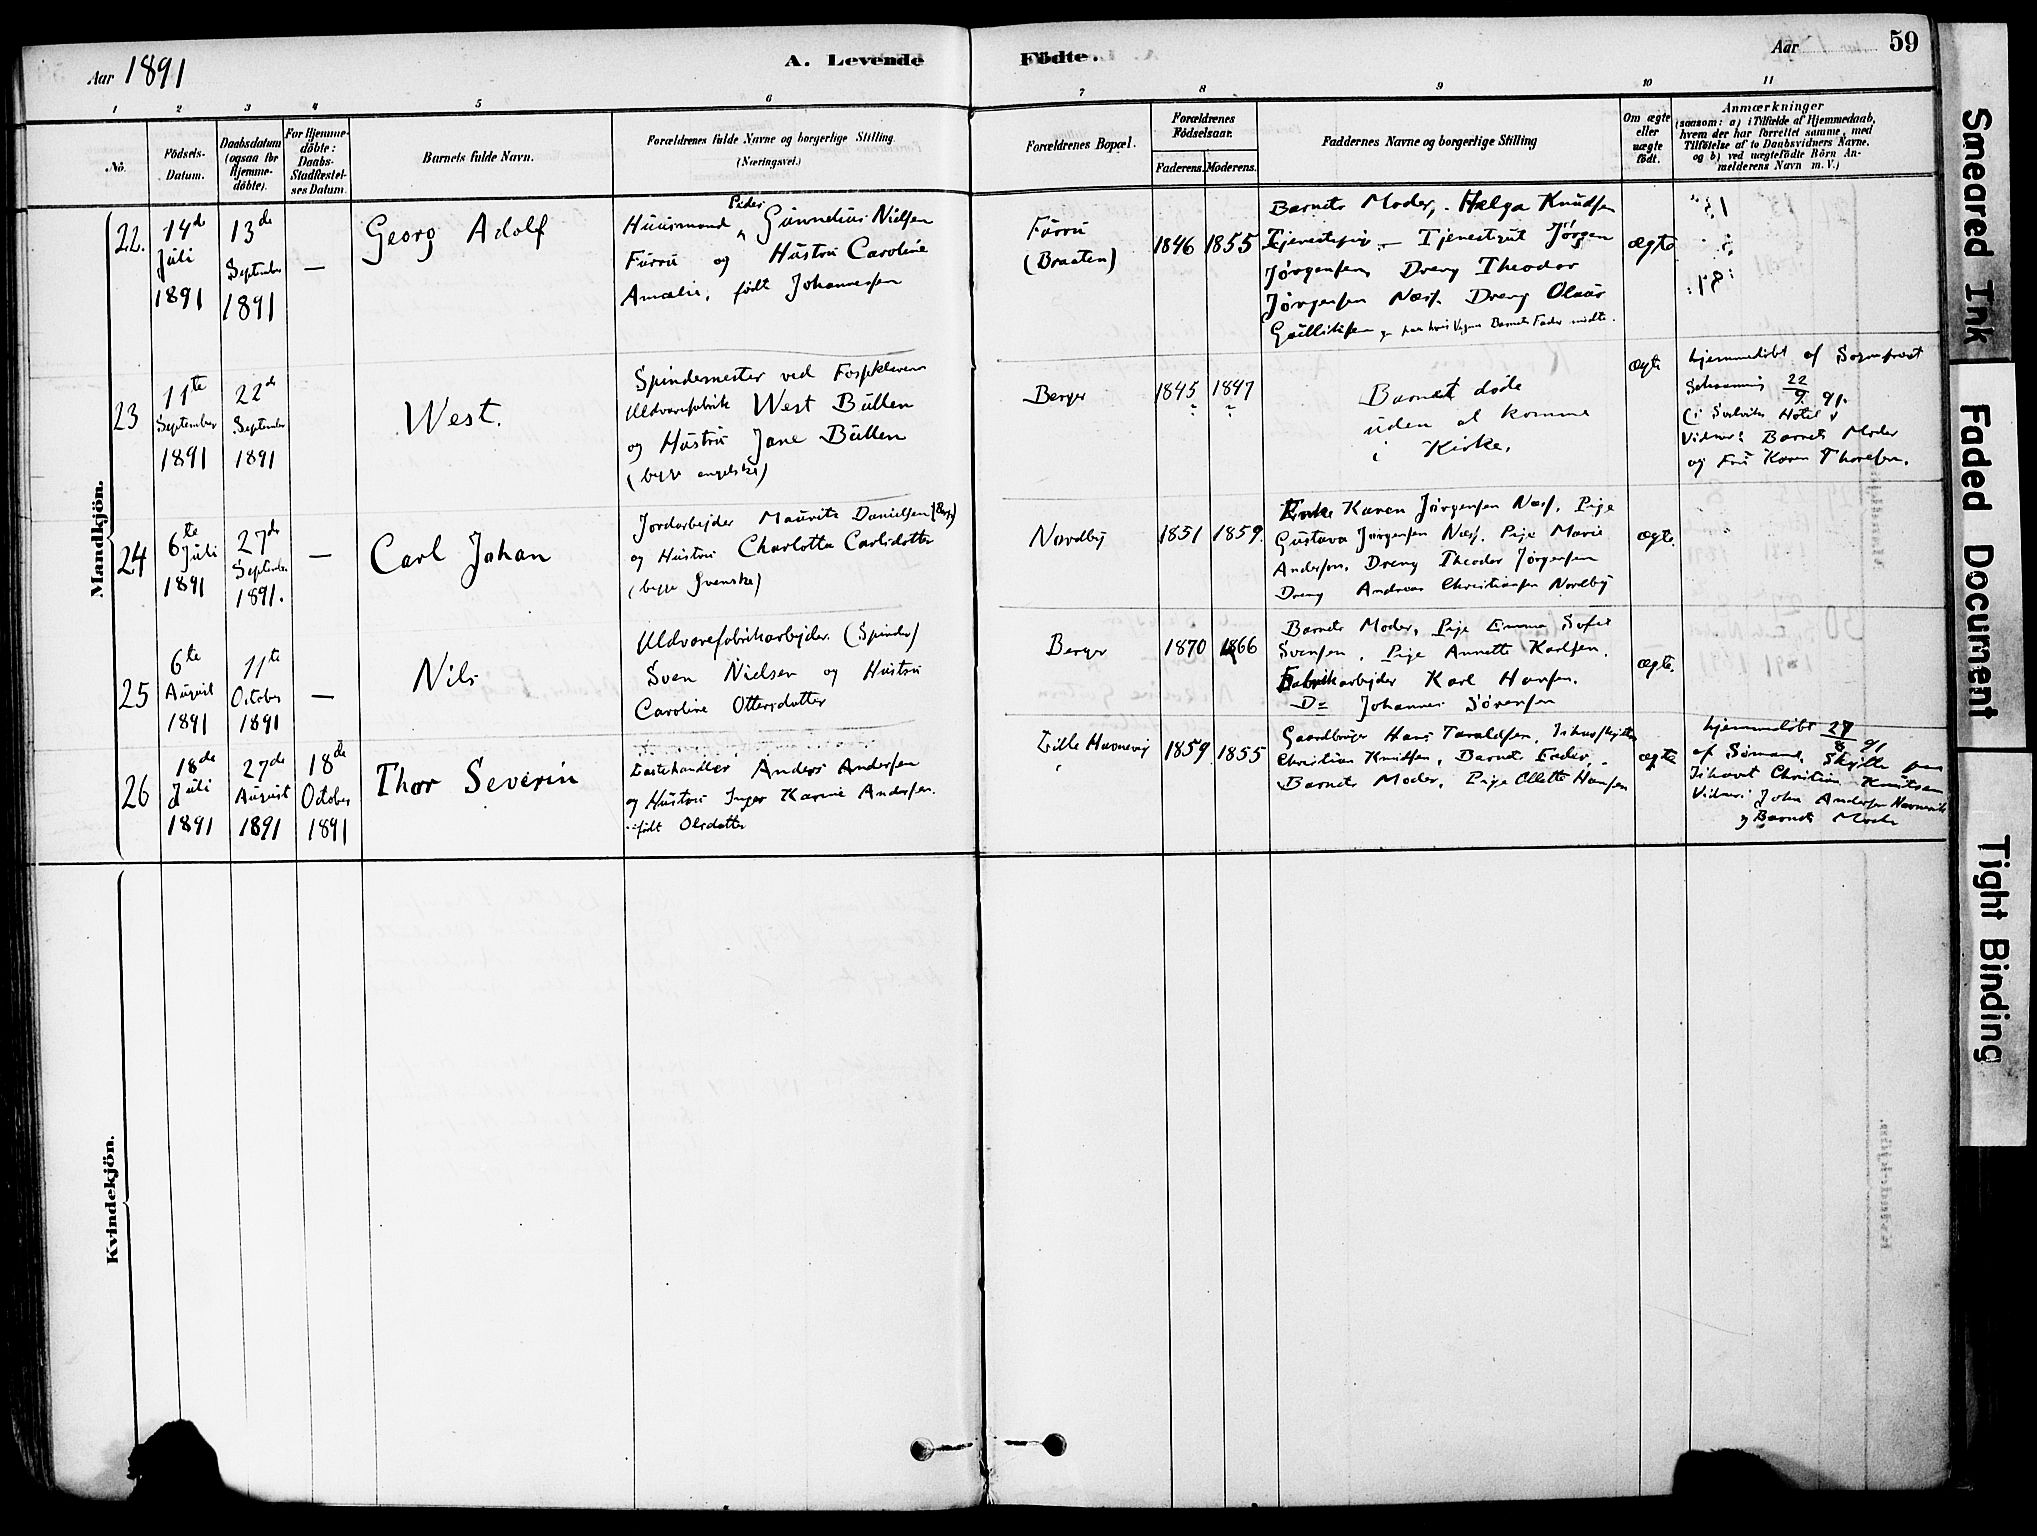 Aar 1891
A. Levende
Födte.
Aar
59
1
2
3
4
5
6
7
8
9
10
11
No.
Födsels-
Datum.
Daabsdatum
(ogsaa for
Hjemme-
döbte).
For Hjemme-
döbte:
Daabs-
Stadfæstel-
ses Datum.
Barnets fulde Navn.
Forældrenes fulde Navne og borgerlige Stilling
(Næringsvei.)
Forældrenes Bopæl.
Forældrenes
Födselsaar.
Faderens.
Moderens.
Faddernes Navne og borgerlige Stilling
Om ægte
eller
uægte
födt.
Anmærkninger
(saasom: a) i Tilfælde af Hjemmedaab,
hvem der har forrettet samme, med
Tilföielse af to Daabsvidners Navne.
og b) ved uægtefödte Börn An-
melderens Navn m. V.)
Mandkjön.
22.
14de
Juli
1891
13de
September
1891
—
Georg Adolf
Peder
Huusmand Gunnelius Nielsen
Furru og Hustru Caroline
Amalie, født Johannesen
Furru
(Braaten)
1846
1855
Barnets Moder, Helga Knudsen
Tjenestepige — Tjenestegut Jørgen
Jørgensen, Dreng Theodor
Jørgensen Næss. Dreng Olaus
Gulliksen Barnets Fader mødte.
ægte
23
11te
September
1891
22de
September
1891
West.
Spindemester ved Fossekleven
Uldvarefabrik West Bullen
og Hustru Jane Bullen
(begge engelske)
Berger
1845
?
1847
?
Barnet døde
uden at komme
i Kirke.
ægte
hjemmedøbt af Sogneprest
22/9 91.
(i Svelvik Hotel
Vidner: Barnets Moder
og Fru Karen Thoresen.
24
6te
Juli
1891
27de
September
1891.
—
Carl Johan
Jordarbejder Maurits Danielsen (Berg)
og Hustru Charlotta Carlsdotter
(begge Svenske)
Nordby
1851
1859.
Enke Karen Jørgensen Næss, Pige
Gustava Jørgensen Næss. Pige Marie
Andersen, Dreng Theodor Jørgensen
Dreng Andreas Christiansen Nordby
ægte.
25
6te
August
1891
11te
October
1891
—
Nils
Uldvarefabrikarbejder (Spinder)
Sven Nielsen og Hustru
Caroline Ottersdatter
Berger
1870
1866
Barnets Moder, Pige Emma Sofie
Svensen, Pige Annette Karlsen,
Fabrikarbejder Karl Hansen.
Do Johannes Sørensen
ægte.
26
18de
Juli
1891
27de
August
1891
18de
October
1891
Thor Severin
Anders Andersen
og Hustru Inger Karine Andersen.
født Olsdatter
Lille Havnevig
1859
1855
Gaardbruger Hans Taraldsen,
Christian Knudsen, Barnets Fader,
Barnets Moder, Pige Olette Hansen
ægte
hjemmedøbt 27/8 91
af Sømand, Skytte paa
Ishavet Christian Knutsen
Vidner: John Andersen Havnevik
og Barnets Moder
Kvindekjön.
Smeared Ink
Faded Document
Tight Binding